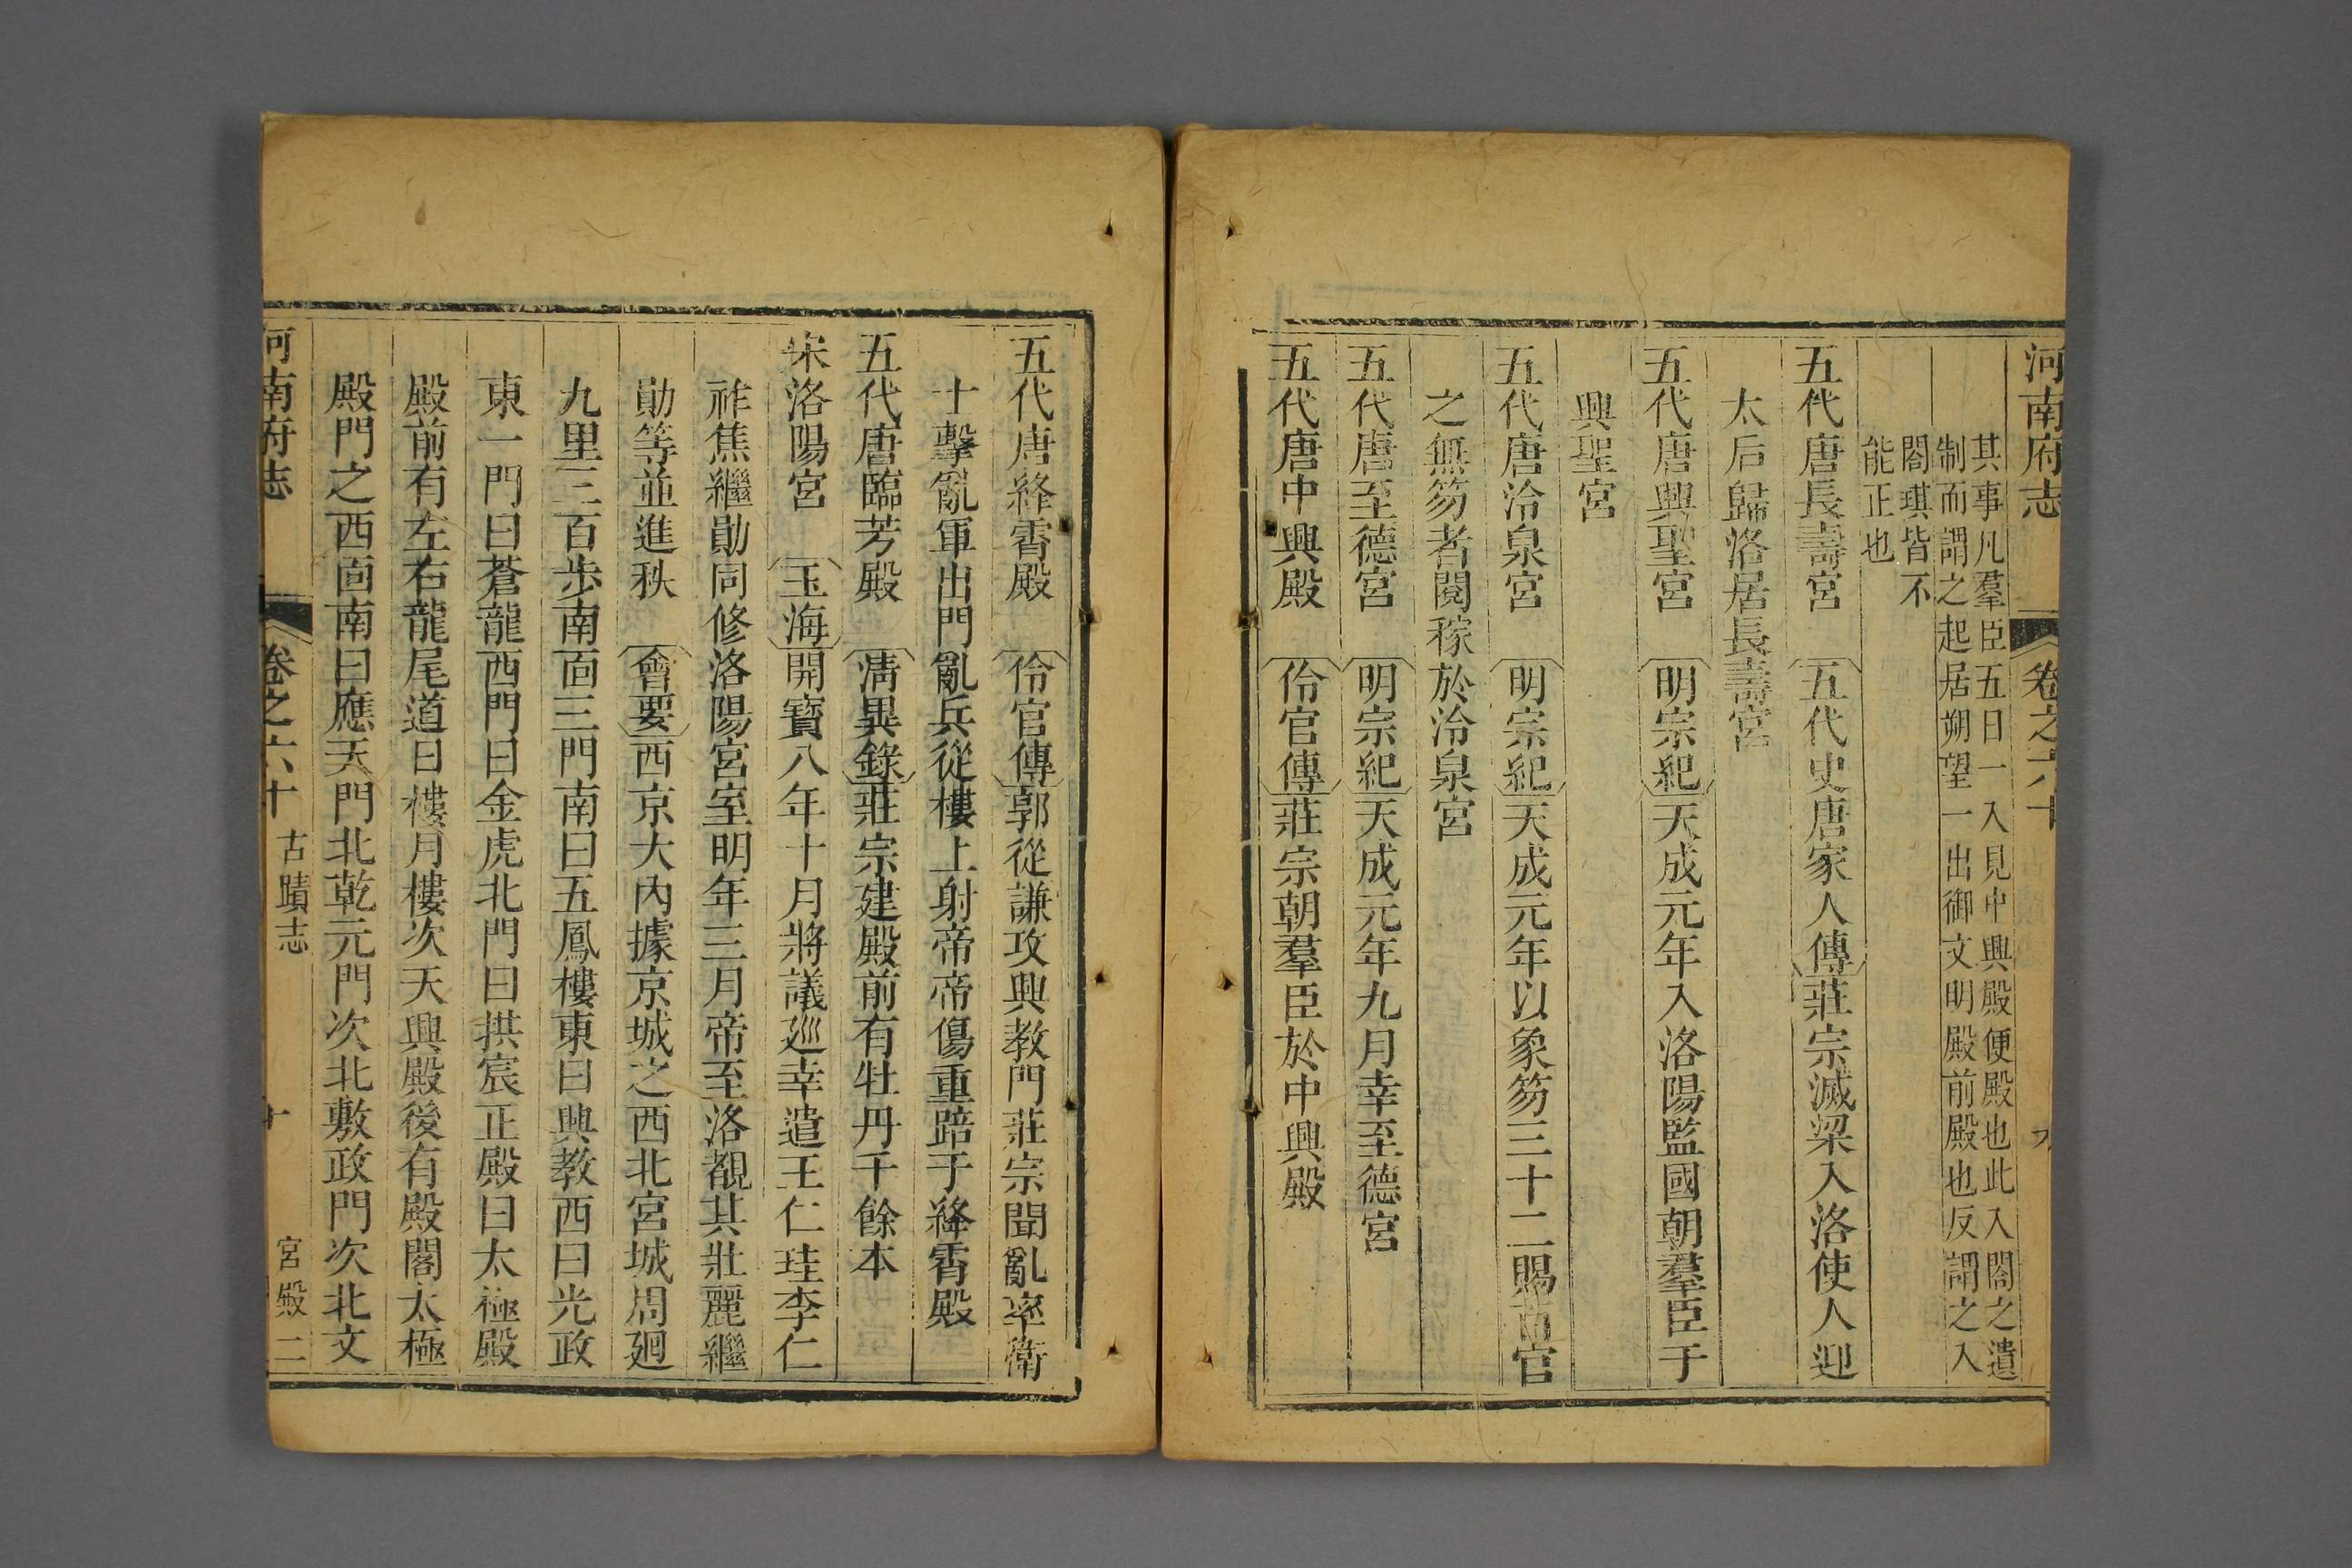 河南府志
卷之六十
其事凡羣臣五日一入見中興殿便殿也此入閤之遺
制而謂之起居朔望一出御文明殿前殿也反謂之入
閤琪皆不
能正也
五代唐長壽宮 五代史唐家人傳莊宗滅梁入洛使人迎
太后歸洛居長壽宮
五代唐興聖宮 明宗紀天成元年入洛陽監國朝羣臣于
興聖宮
五代唐泠泉宮 明宗紀天成元年以象笏三十二賜百官
之無笏者閱稼於泠泉宮
五代唐至德宮 明宗紀天成元年九月幸至德宮
五代唐中興殿 伶官傳莊宗朝羣臣於中興殿
五代唐絳霄殿 伶官傳郭從謙攻興教門莊宗聞亂率衛
十擊亂軍出門亂兵從樓上射帝帝傷重踣于絳霄殿
五代唐臨芳殿 清異錄莊宗建殿前有牡丹千餘本
宋洛陽宮 玉海開寶八年十月將議巡幸遣王仁珪李仁
祚焦繼勛同修洛陽宮室明年三月帝至洛覩其壯麗繼
勛等並進秩 會要西京大內據京城之西北宮城周廻
九里三百步南面三門南曰五鳳樓東曰興教西曰光政
東一門曰蒼龍西門曰金虎北門曰拱宸正殿曰太極殿
殿前有左右龍尾道日樓月樓次天興殿後有殿閣太極
殿門之西面南曰應天門北乾元門次北敷政門次北文
河南府志
卷之六十
古蹟志
十
宮殿二